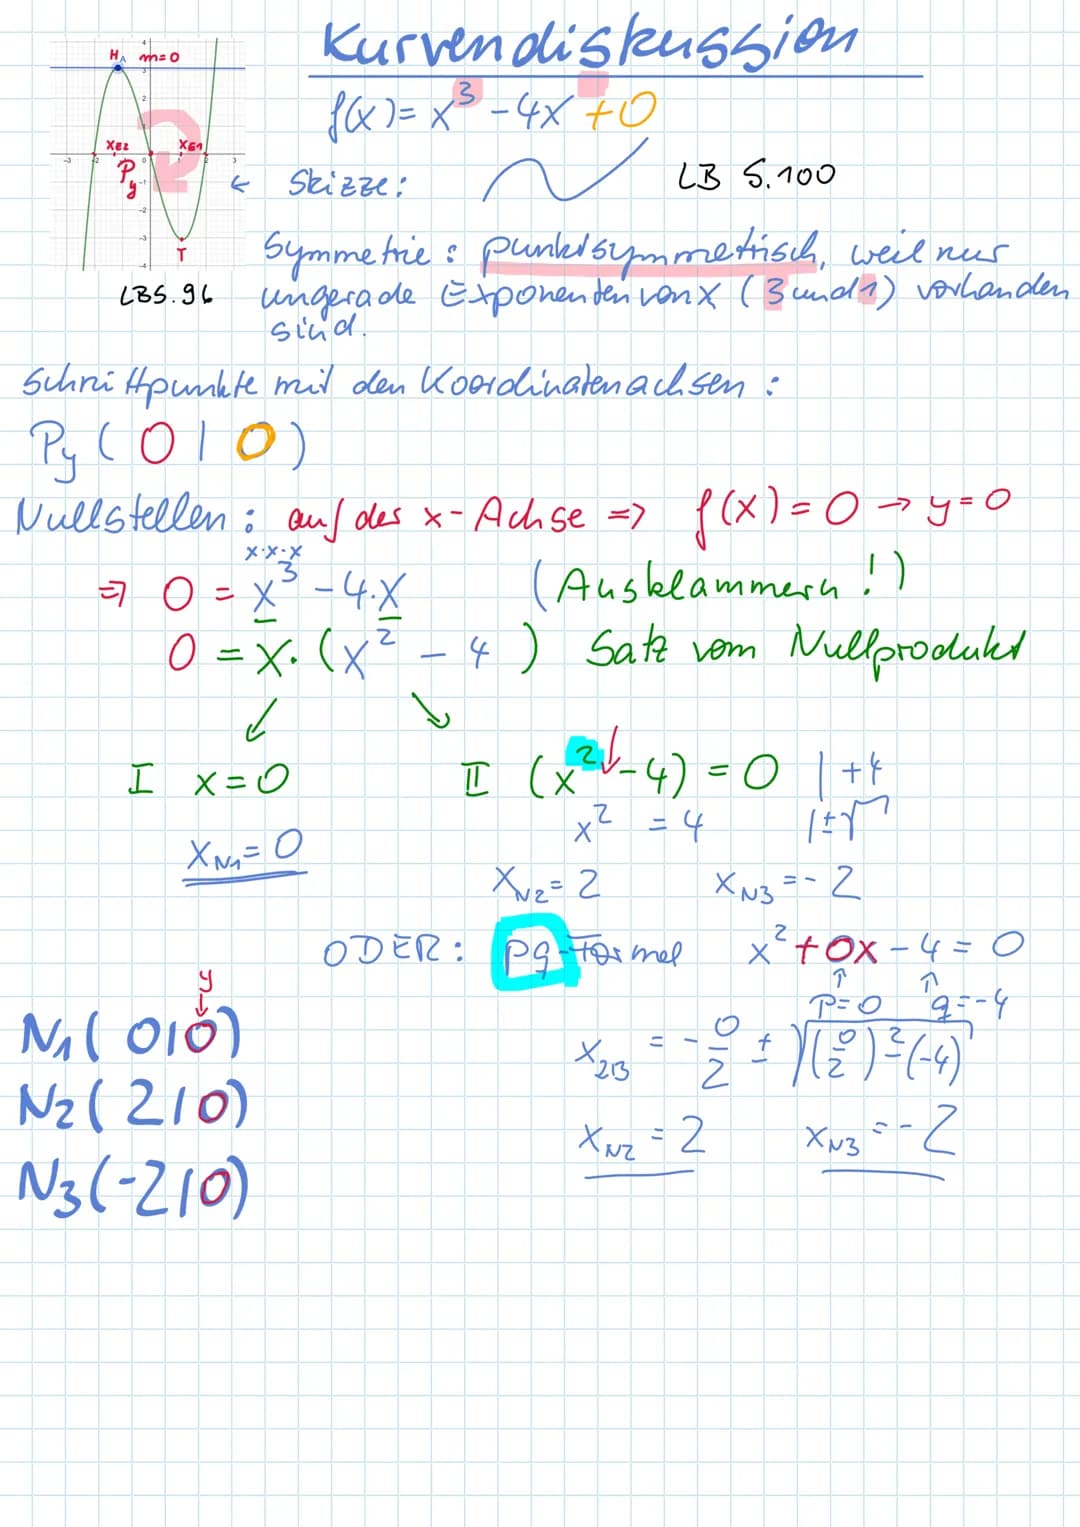 Kurvendiskussion
f(x) = x³ - 4x + 0
H A m=0
4
3
2
1
xE2 xE1
-3 -2 0 1 2 3
Py
-1
-2
-3
-4
T
LB S. 96
← Skizze:
LB S. 100
Symmetrie: punktsymmetrisch, weil nur
ungerade Exponenten von x (3 und 1) vorhanden
sind.
Schnittpunkte mit den Koordinatenachsen:
Py (0|0)
Nullstellen: auf der x-Achse => f(x) = 0 → y=0
x·x·x
=> 0 = x³ - 4·x (Ausklammern!)
0 = x·(x² - 4) Satz vom Nullprodukt
↙ ↘
I x=0 II (x² - 4) = 0 | +4
x² = 4 | ±√
xN1 = 0
xN2 = 2 xN3 = -2
ODER: pq-Formel x² + 0x - 4 = 0
↑ ↑
p=0 q=-4
x2/3 = -0/2 ± √((0/2)² - (-4))
xN2 = 2 xN3 = -2
y
↓
N1 (0|0)
N2 (2|0)
N3 (-2|0)